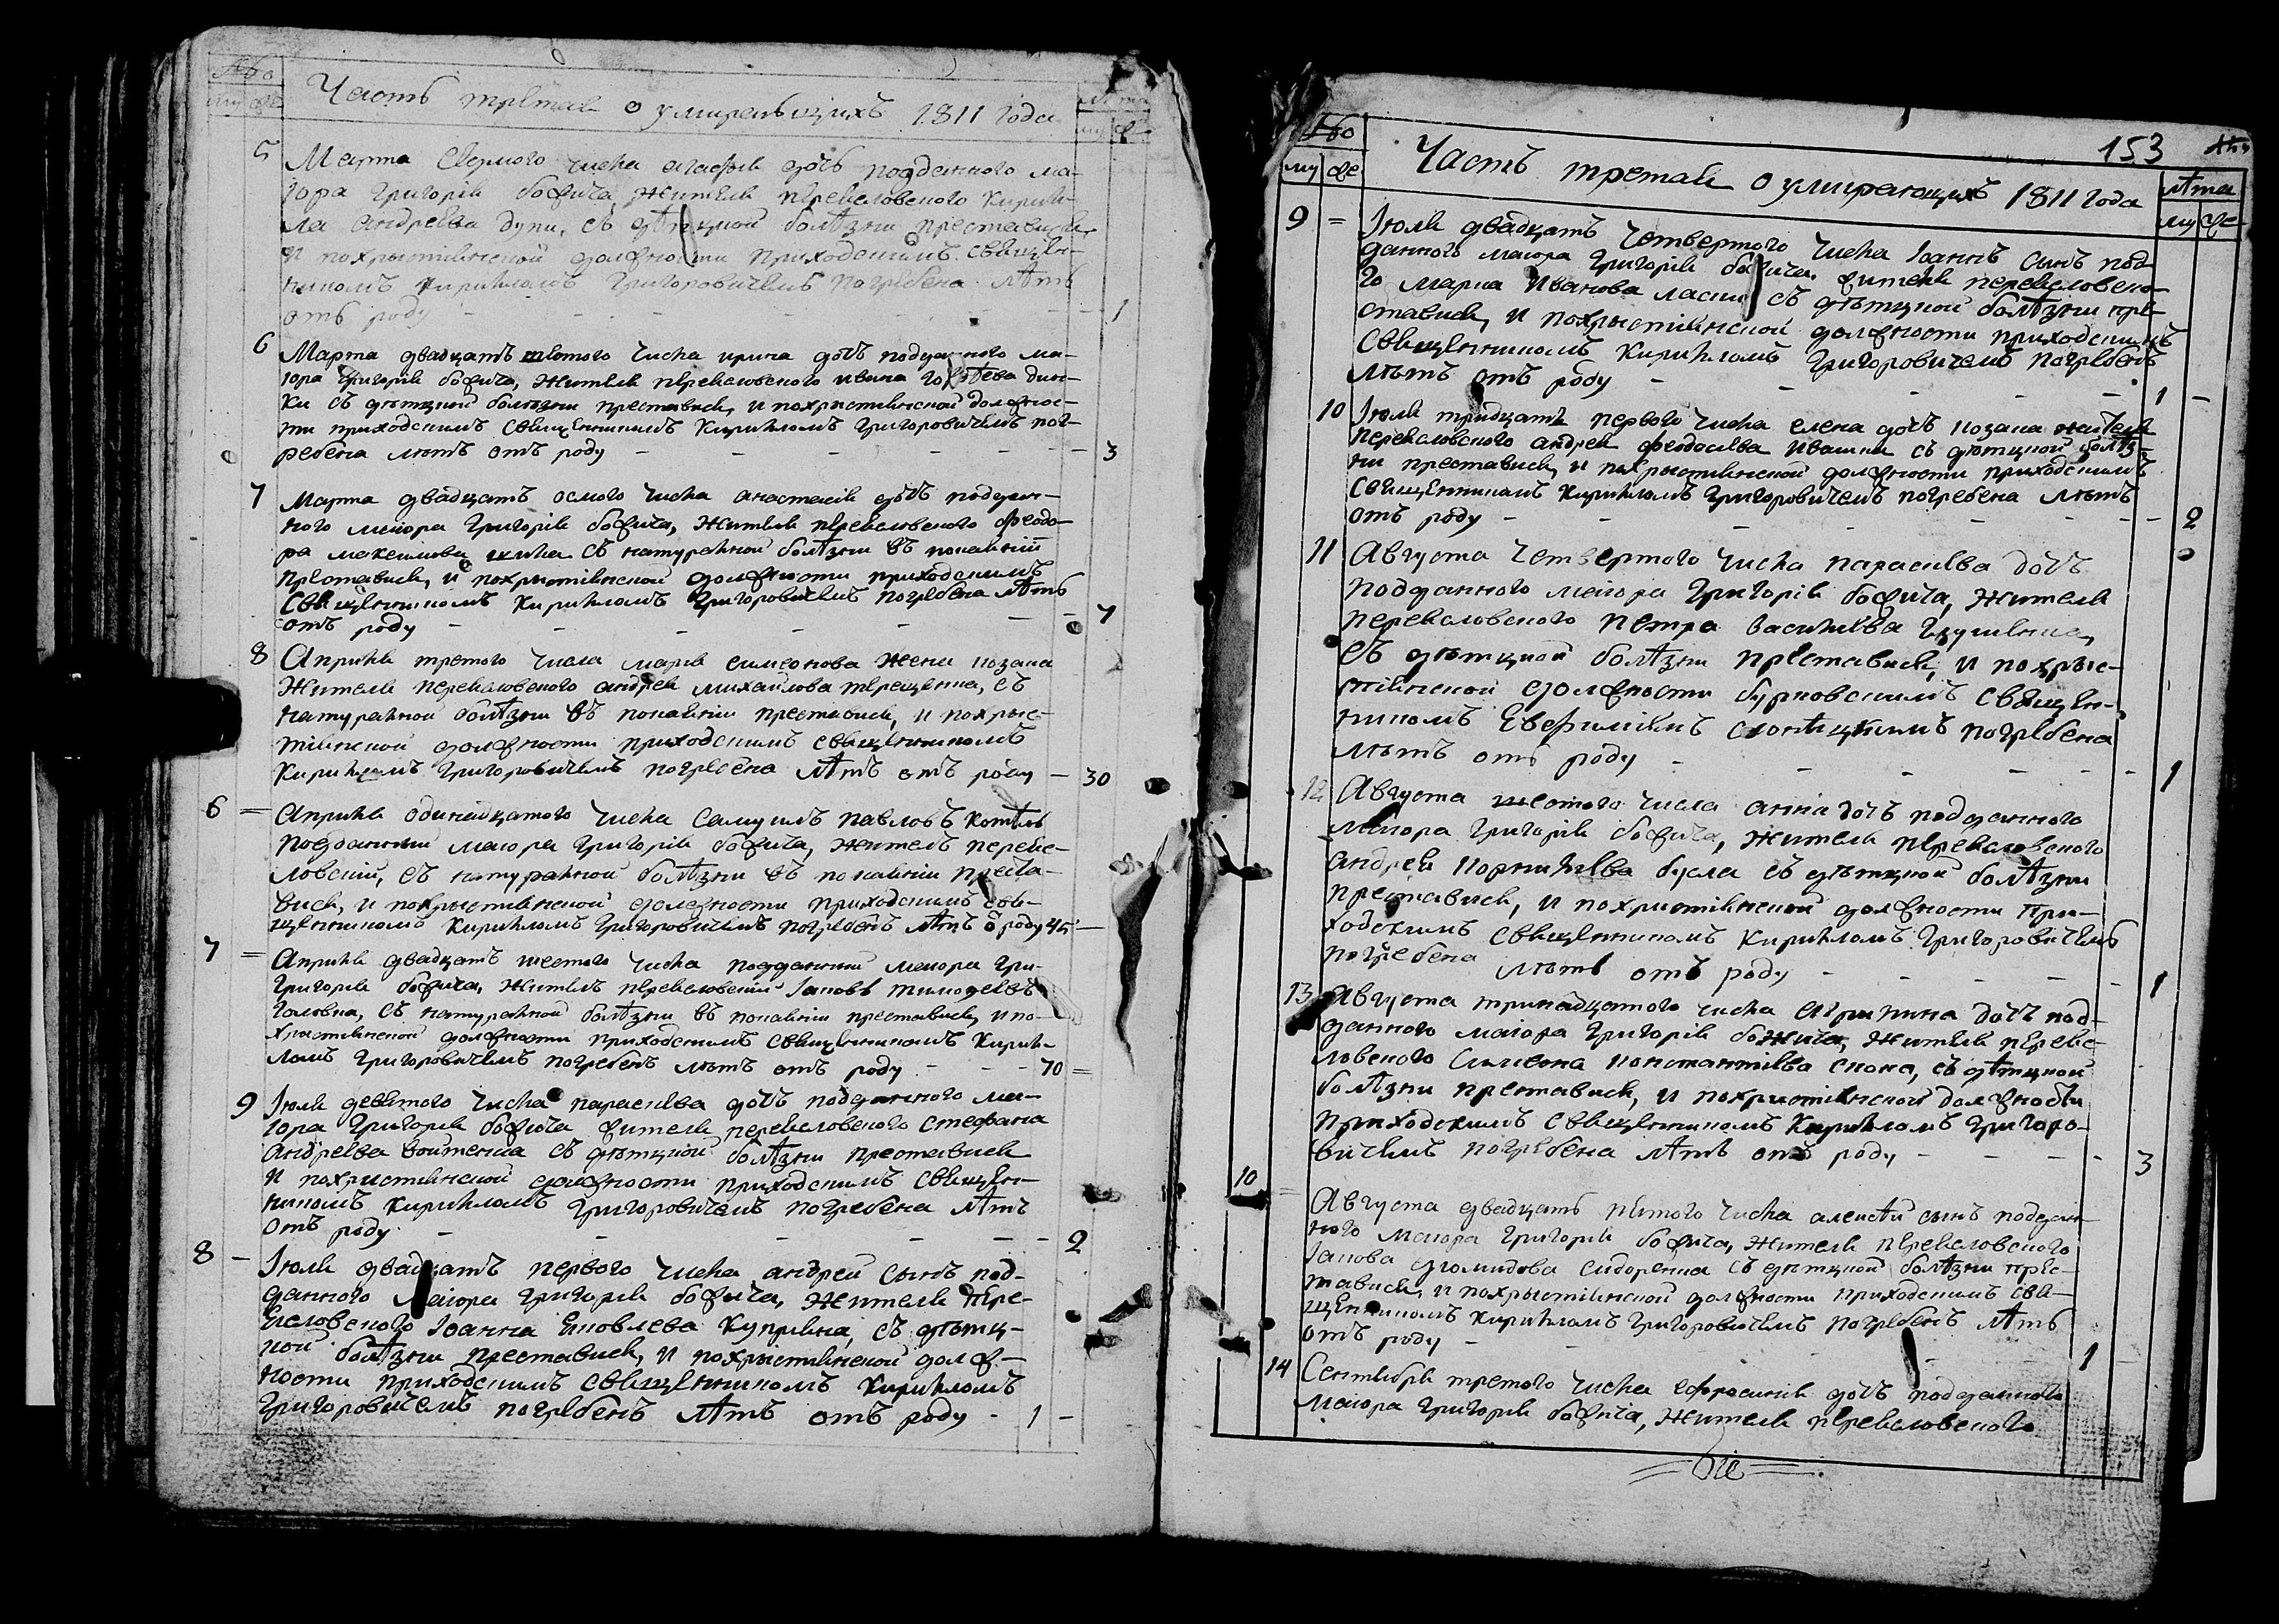 Часть третая о умирающихъ 1811 года
5 Марта седмого числа агафия дочь подданного ма-
іора григорія божича жителя переясловского Кирил-
ла андреева съ дѣтцкой болѣзни преставися,
и похрыстіянской должности приходскимъ священ-
никомъ кирилломъ Григоровичемъ погребена лѣтъ
отъ роду - 1
6 Марта двадцать шестого числа ирина дочъ подданного ма-
іора григорія божича, жителя переясловского ивана
съ дѣтцкой болѣзни преставися, и похристіянской должнос-
ти приходскимъ священникомъ Кирилломъ григоровичемъ пог-
ребена лѣтъ отъ роду - 3
7 Марта двадцать осмого числа анастасія дочъ поддан-
ного маіора григорія божича, жителя переясловского феодо-
ра максимова съ натуралной болѣзни въ покаяніи
преставися, и похристіянской должности приходскимъ
священникомъ Кирилломъ григоровичемъ погребена лѣтъ
отъ роду - 7
8 Априля третого числа марія симеонова жена козака
жителя переясловского андрея михайлова терещенка, съ
натуралной болѣзни въ покаяніи преставися, и похрыс-
тіянской должности приходскимъ священникомъ
Кирилломъ григоровичемъ погребена лѣтъ отъ роду - 30
6 = Априля одинайцатого числа Самуилъ павловъ
подданный маіора григорія божича, жителъ переяс-
ловский, съ натуралной болѣзни въ покаяніи преста-
вися, и похрыстіянской должности приходскимъ свя-
щенникомъ Кирилломъ григоровичемъ погребенъ лѣтъ ѿ роду 45 -
7 = Априля двадцать шестого числа подданный маіора гри-
григорія божича, жителъ переясловский Іаковъ тимофеевъ
головка, съ натуралной болѣзни въ покаяніи преставися, и по-
христіянской должности приходскимъ священникомъ Кирил-
ломъ григоровичемъ погребенъ лѣтъ отъ роду - 70 =
9 Іюля девятого числа параскева дочъ подданного ма-
іора григорія божича жителя переясловского стефана
андреева войтенка съ дѣтцкой болѣзни преставися
и похристіянской должности приходскимъ священ-
никомъ кирилломъ григоровичемъ погребена лѣтъ
отъ роду - 2
8 - Іюля двадцать первого числа андрей сынъ под-
данного маіора григорія божича, жителя пере-
ясловского Іоанна яковлева куприена, съ дѣтц-
кой болѣзни преставися, и похрыстіянской долж-
ности приходскимъ священникомъ Кирилломъ
григоровичемъ погребенъ лѣтъ отъ роду - 1 -
153
му же Часть третая о умирающихъ 1811 года лѣта
му же
9 = Іюля двадцать четвертого числа Іоаннъ сынъ под-
данного маіора григорія божича, жителя переясловско-
го марка иванова съ дѣтцкой болѣзни пре-
ставися, и похрыстіянской должности приходскимъ
священникомъ Кирилломъ григоровичемъ погребенъ
лѣтъ отъ роду - 1 -
10 Іюля тридцать первого числа елена дочъ козака жителя
переясловского андрея феодосиева ивашки съ дѣтцкой болѣз-
ни преставися, и похрыстіянской должности приходскимъ
священникомъ Кирилломъ григоровичемъ погребена лѣтъ
отъ роду - 2
11 Августа четвертого числа параскева дочъ
подданного маіора григорія божича, жителя
переясловского петра василиева
съ дѣтцкой болѣзни преставися, и похрыс-
тіянской должности бурковскимъ священ-
никомъ Евфиміемъ погребена
лѣтъ отъ роду - 1
12 Августа шестого числа анна дочъ подданного
маіора григорія божича, жителя переясловского
андрея корнилиева бусла съ дѣтцкой болѣзни
преставися, и похристіянской должности при-
ходскимъ священникомъ Кирилломъ григоровичемъ
погребена лѣтъ отъ роду - 1
13 Августа тринадцатого числа агрипина дочъ под-
данного маіора григорія божича, жителя переяс-
ловского Симеона константиева скока, съ дѣтцкой
болѣзни преставися, и похристіянской должности
приходскимъ священникомъ Кирилломъ григоро-
вичемъ погребена лѣтъ отъ роду - 3
10 = Августа двадцать пятого числа алексѣй сынъ поддан-
ного маіора григорія божича, жителя переясловского
Іакова диомидова сидоренка съ дѣтцкой болѣзни прес-
тавися, и похрыстіянской должности приходскимъ свя-
щенникомъ Кирилломъ григоровичемъ погребенъ лѣтъ
отъ роду - 1
14 Сентября третого числа ефросинія дочъ подданного
маіора григорія божича, жителя переясловского